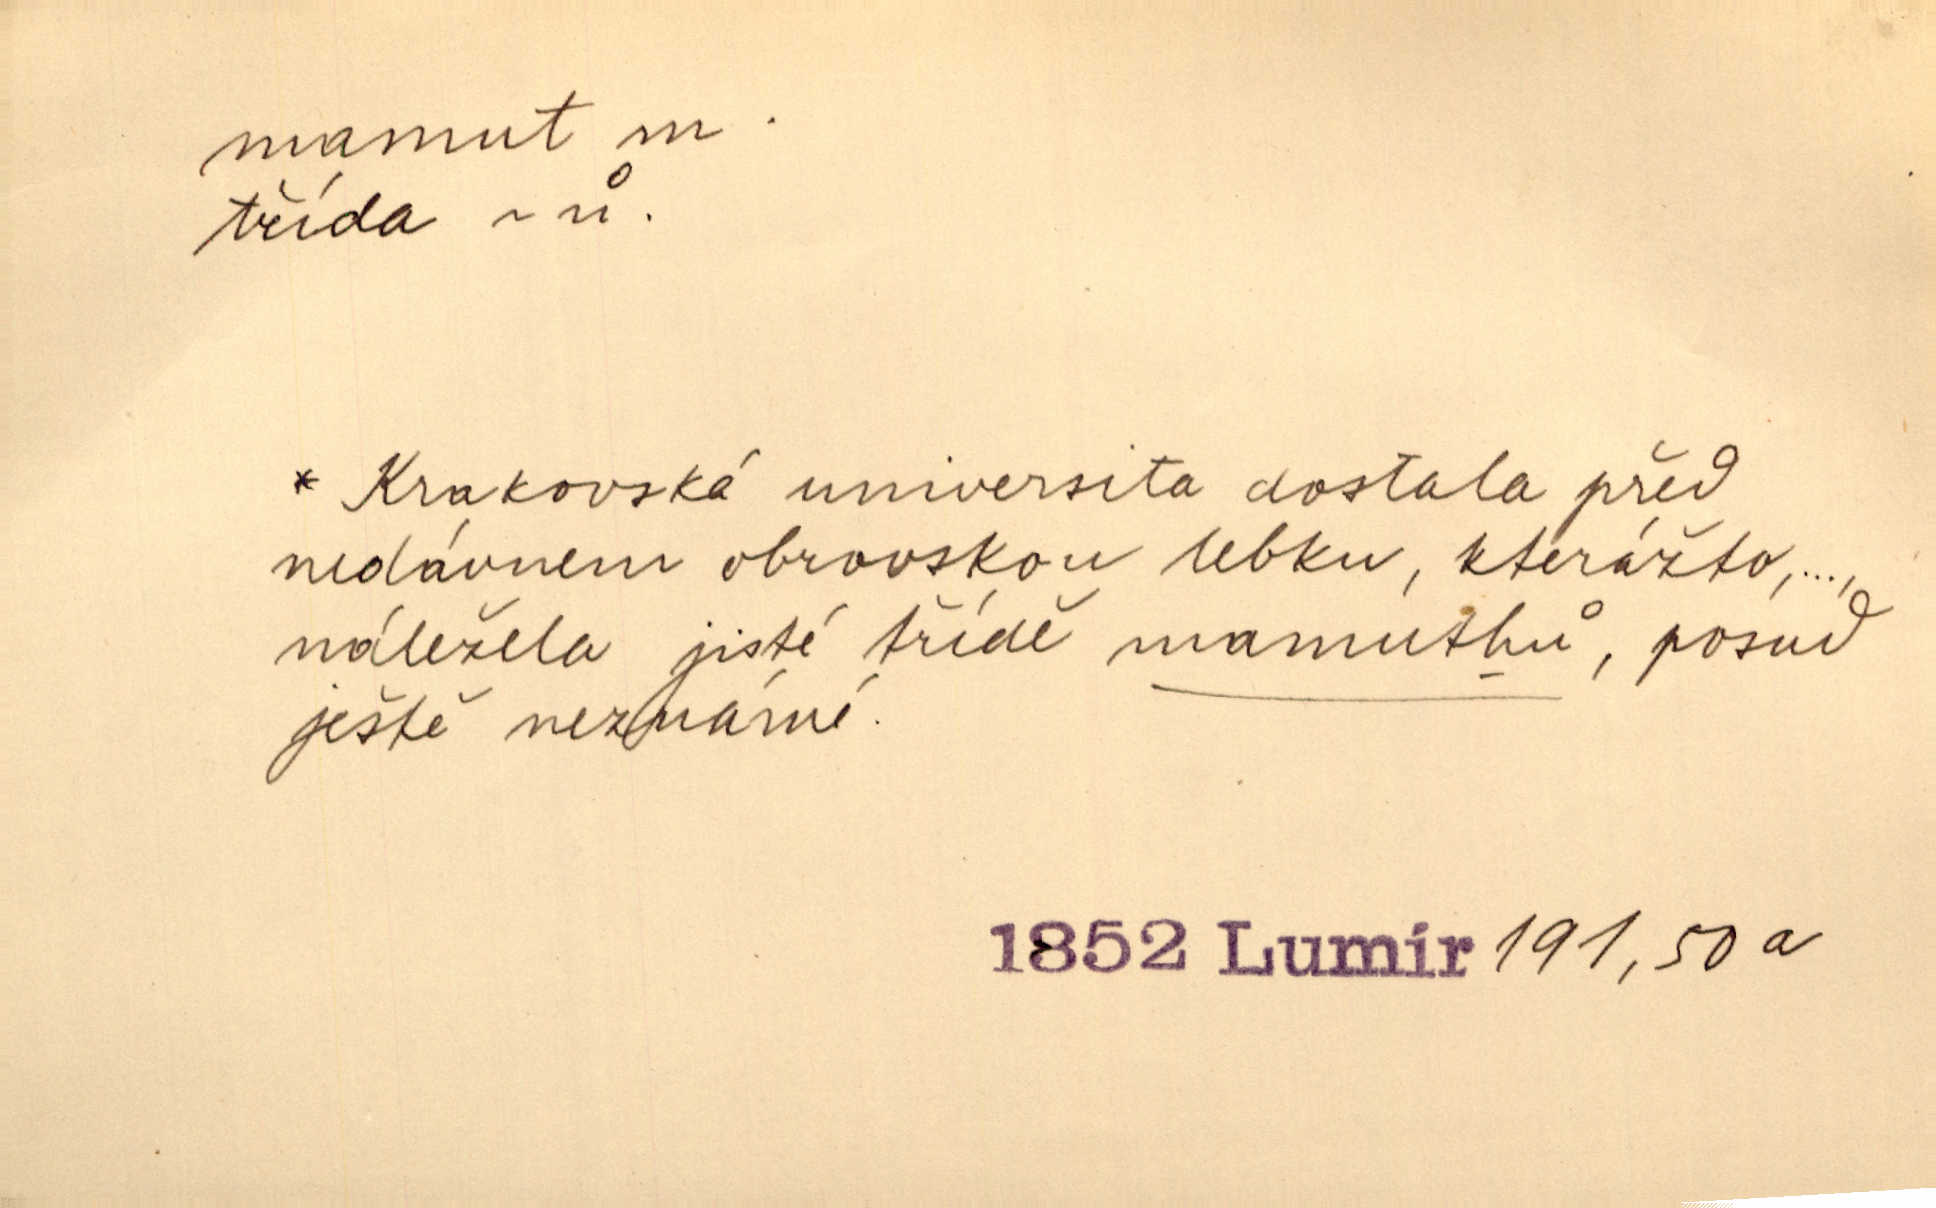 mamut m.
třída ~ů.
* Krakovská universita dostala před
nedávnem obrovskou lebku, kterážto,...,
náležela jisté třídě mamuthů, posud
ještě neznámé.
1852 Lumír 191, 50 a